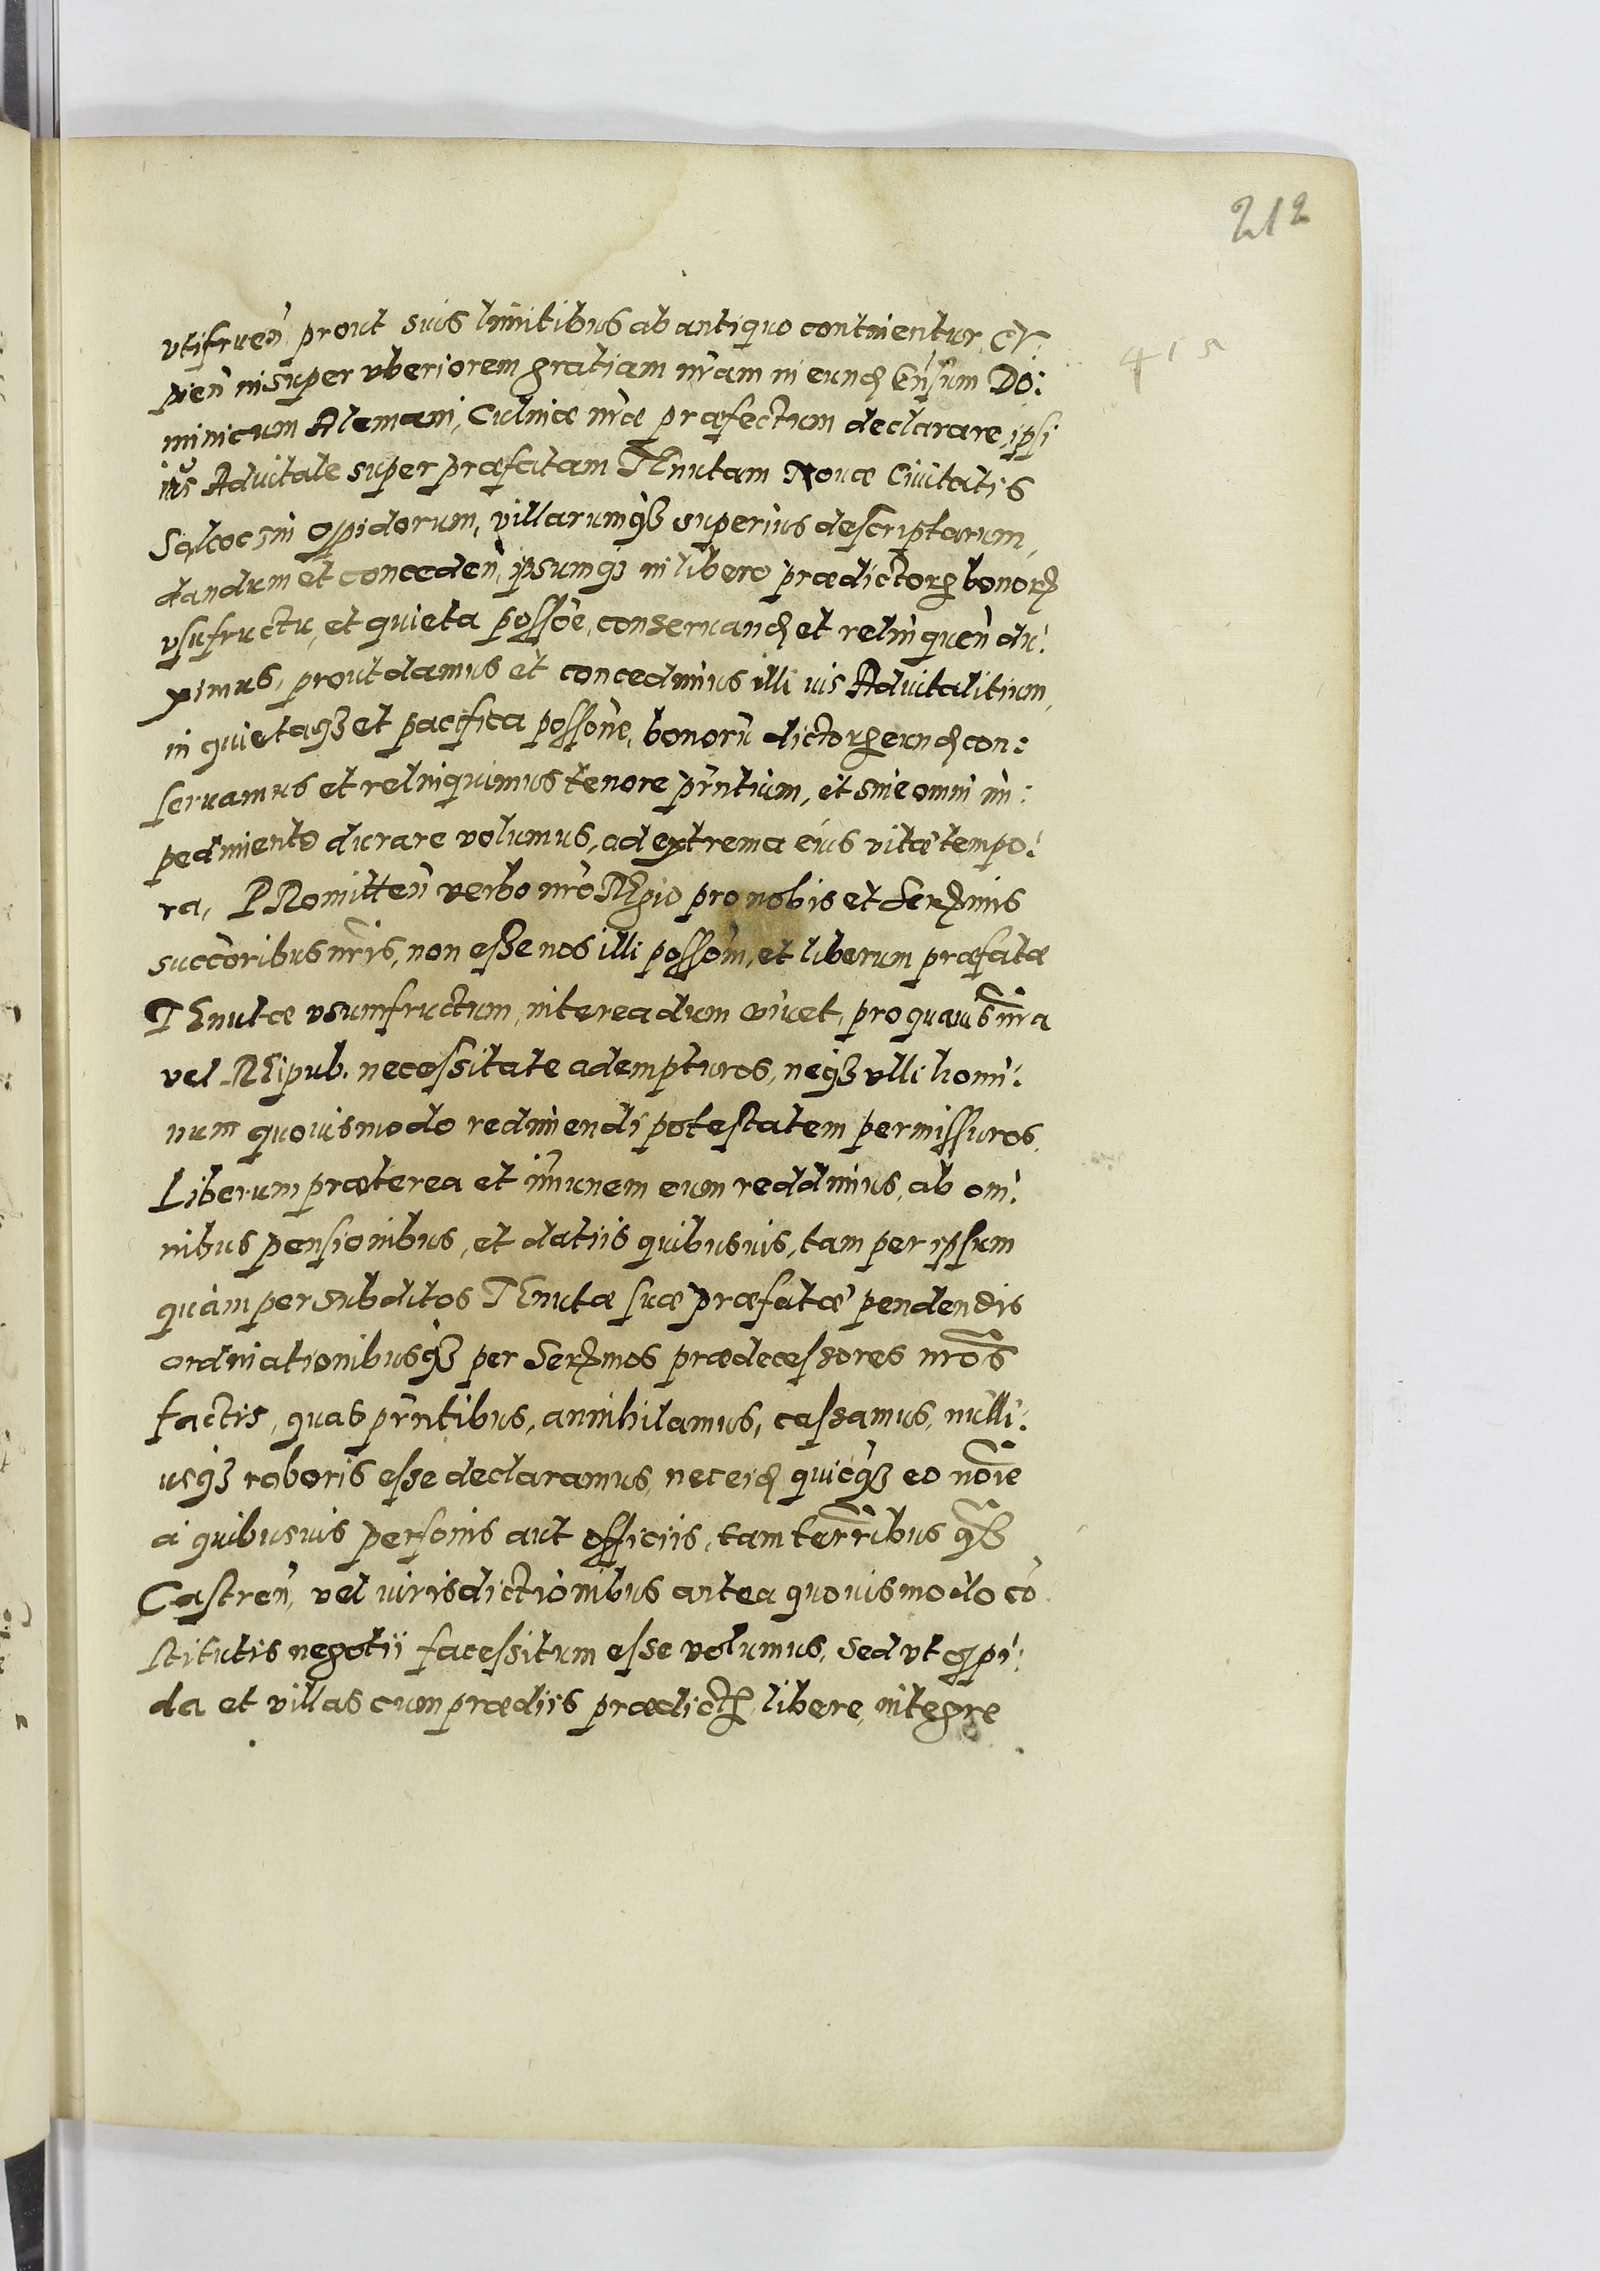 212
415
vtifruen̄ prout suis limitibus ab antiquo continentur, Cu:
pien̄ insuper vberiorem gratiam nr̄am in eund Gn̄sum Do:
minicum Alemani, Culinæ nr̄æ præfectum declarare, ipsi
ius Aduitale super præfatam TEnutam Nouæ Ciuitatis
oppidorum, villarumq3 superius descriptarum,
dandum et conceden̄, ipsumq3 in libero prædictorꝝ bonorꝝ
vsufructu, et quieta possōe, conseruand et relinquen̄ du:
ximus, prout damus et concedimus illi ius Aduitalitium,
in quietaq3 et pacifica possōne, bonorū dictorꝝ eund con:
seruamus et relinquimus tenore pn̄ntium, et sine omni im:
pedimento durare volumus, ad extrema eius vitæ tempo:
ra, PRomitten̄ verbo nr̄o REgio pro nobis et Serꝝmis
succōribus nr̄is, non esse nos illi possōm, et liberum præfatæ
TEnutæ vsumfructum, interea dum viuet, pro quauis nr̄a
vel REipub. necessitate adempturos, neq3 vlli homi:
num quouismodo redimendi potestatem permissuros.
Liberum præterea et im̄unem eum reddimus, ab om:
nibus pensionibus, et datiis quibusuis, tam per ipsum
quàm per subditos TEnutæ suæ præfatæ pendendis
ordinationibusq3 per Serꝝmos prædecessores nr̄os
factis, quas pn̄ntibus, annihilamus, cassamus, nulli:
usq3 roboris esse declaramus, nec eid quicq3 eo nōie
a quibusuis personis aut officiis, tam terr̄ribus q̄3
Castren̄, vel iurisdictionibus antea quouismodo cō
stitutis negotii facessitum esse volumus, sed vt oppi:
da et villas cum prædiis prædictꝝ, libere, integre